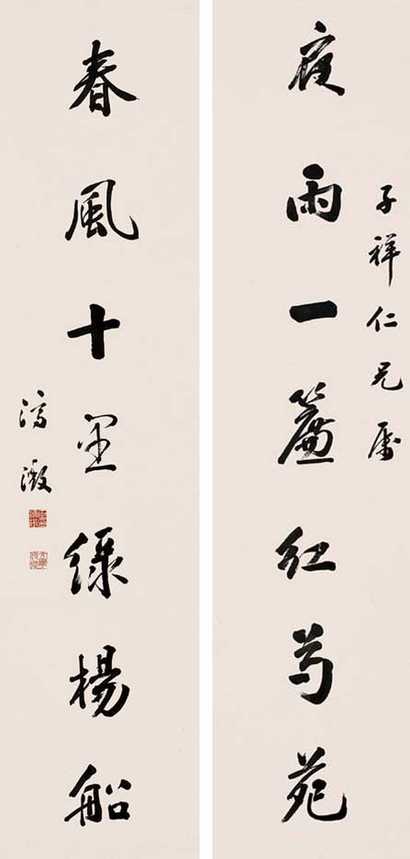 子祥仁兄屬
夜雨一簾紅芍苑
春風十里綠楊船